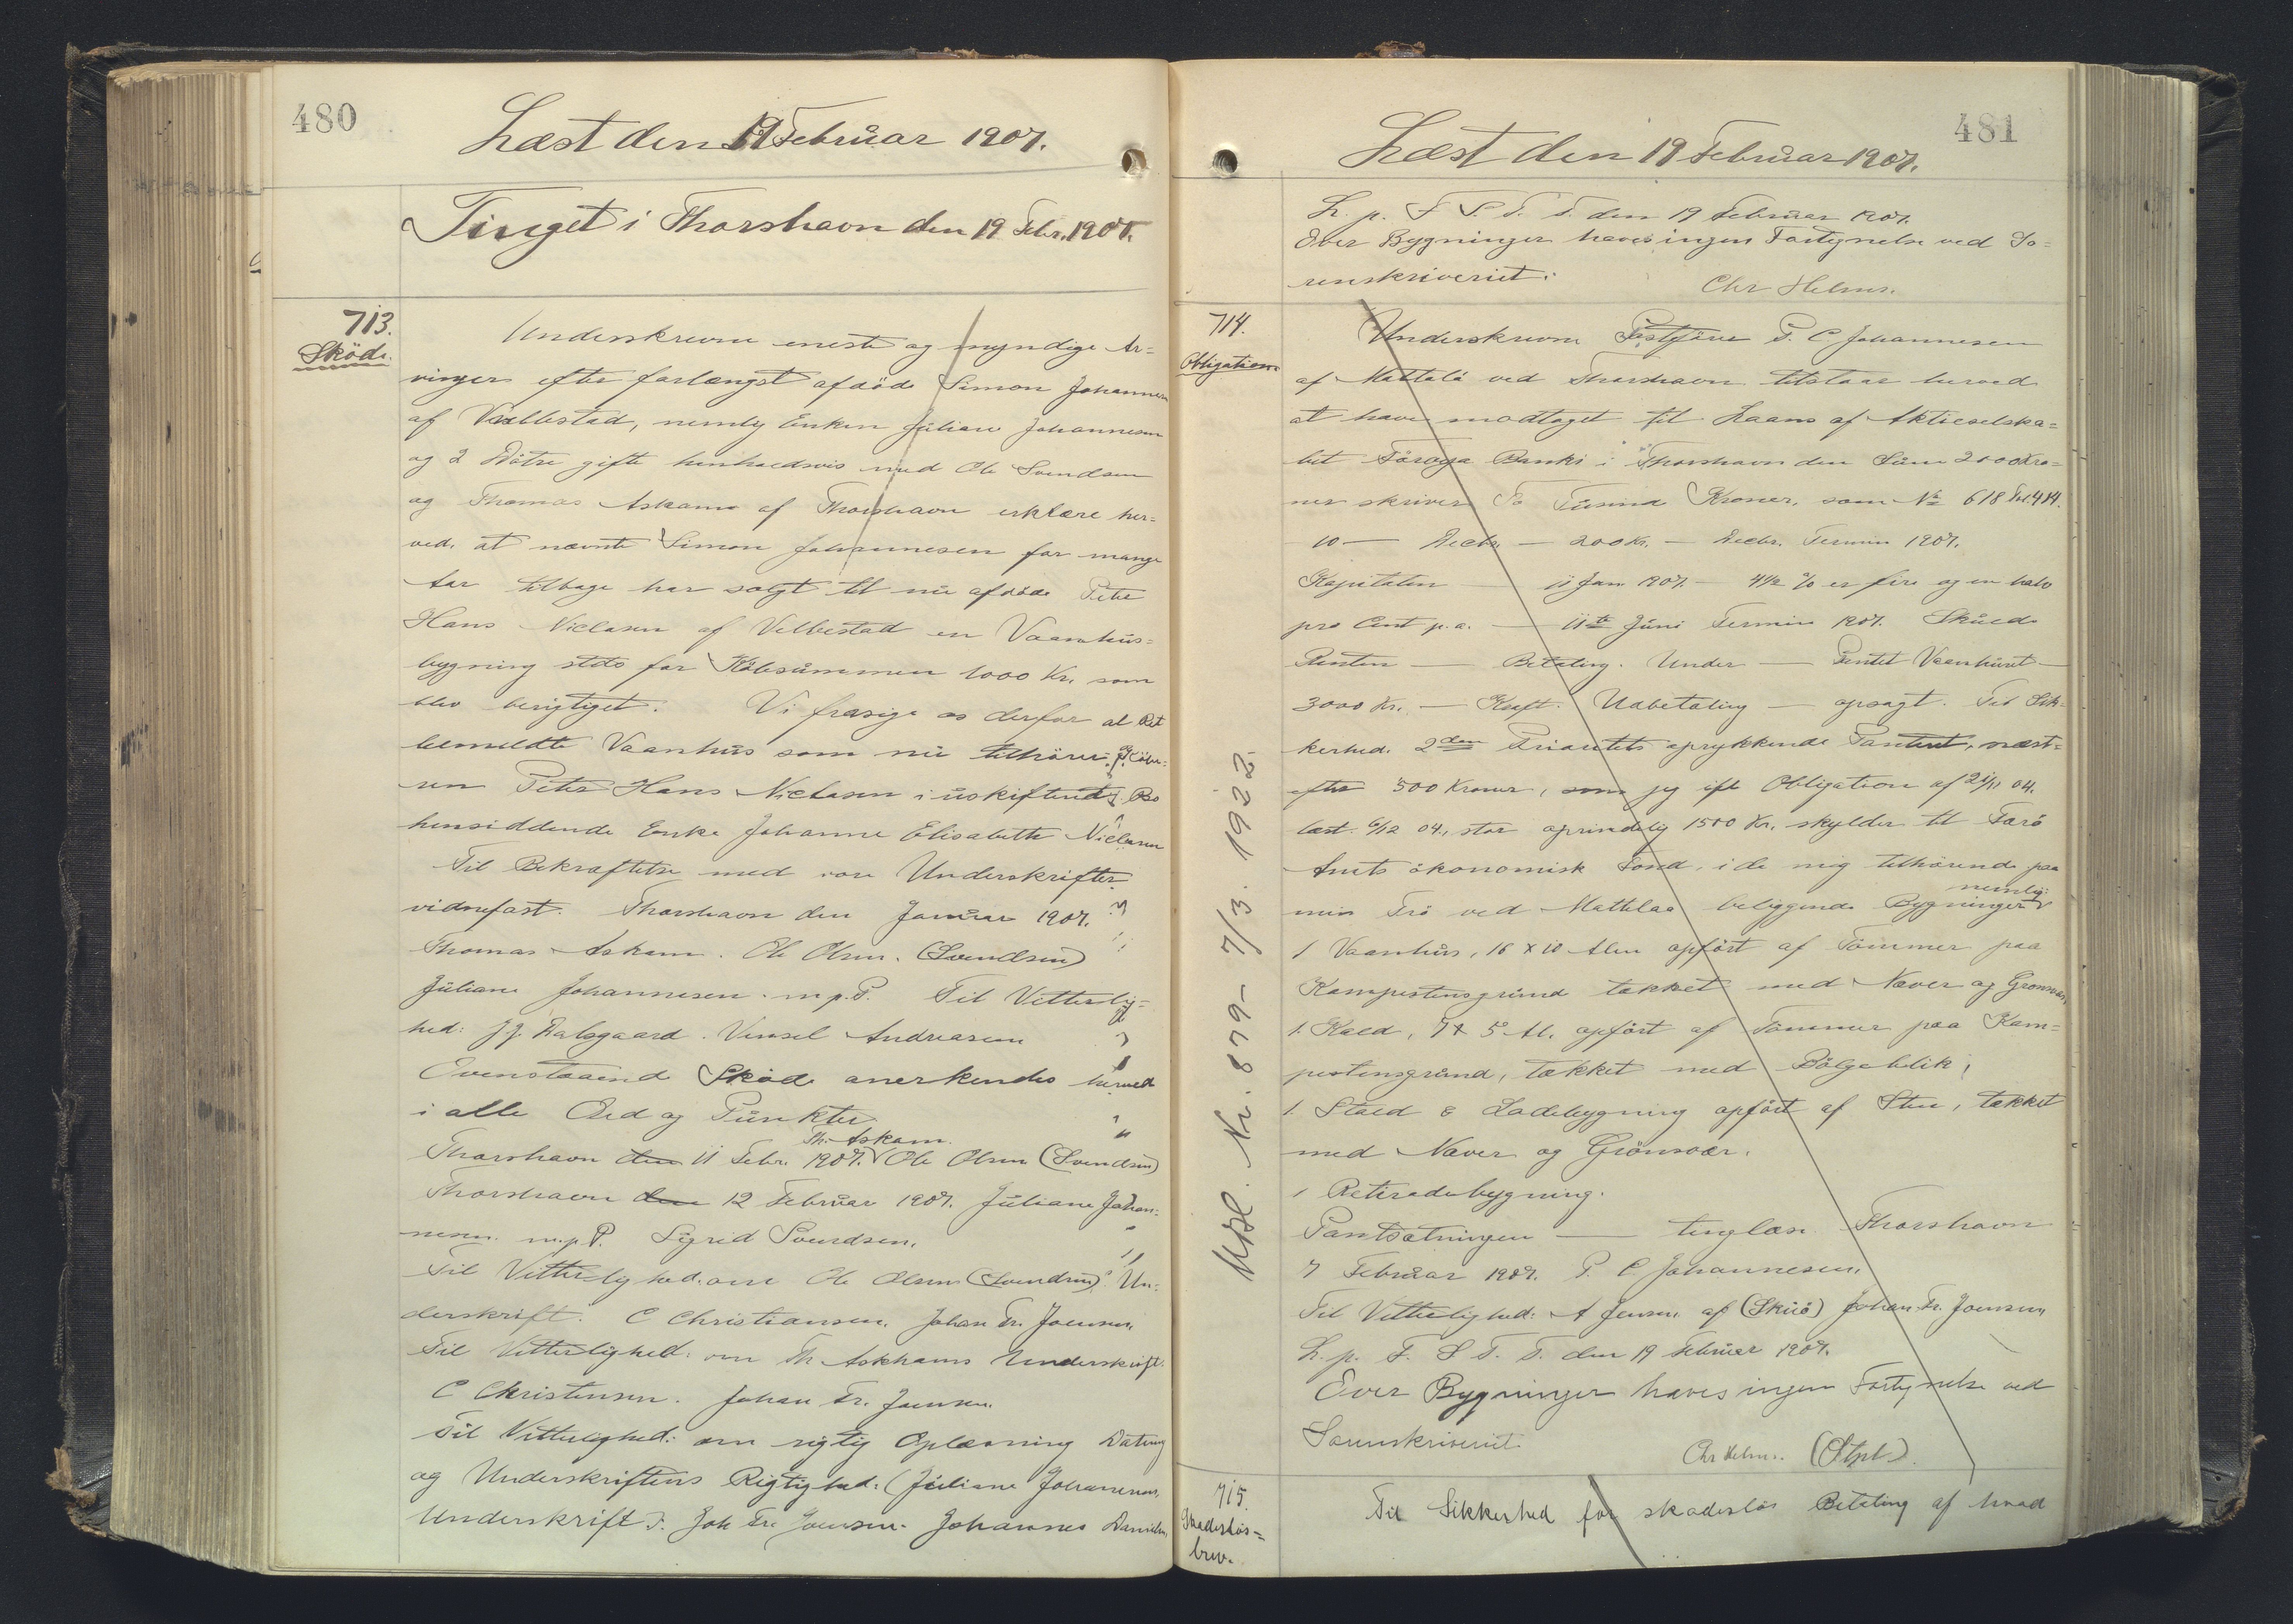 480
Læst den 19 Februar 1907.
Tinget i Thorshavn den 19 Febr. 1907.
713.
Sköde.
Underskrevne eneste og myndige Ar=
vinger efter forlængst afdöde Simon Johannesen
af Velbestad, nemlig Enken Juliane Johannesen
og 2 Dötre gifte henholdsvis med Ole Svendsen
og Thomas Askam af Thorshavn erklære her=
ved, at nævnte Simon Johannesen for mange
Aar tilbage har solgt til nu afdöde Peter
Hans Niclasen af Velbestad en Vaanhus=
bygning steds for Köbesummen 1000 Kr. som
blev berigtiget. Vi frasige os derfor al Ret
bemeldte Vaanhus som nu tilhörer
Peter Hans Niclasen i uskiftet Bo
hensiddende Enke Johanne Elisabeth Niclasen
Til Bekræftelse med vore Underskrifter
vidnefast. Thorshavn den Januar 1907.
Thomas Askam. Ole Olsen. (Svendsen)
Juliane Johannesen. m.p.P. Til Vitterlig=
hed: J J. Dalsgaard. Vensel Andreasen
Ovenstaaende Sköde anerkendes herved
i alle Ord og Punkter
Th. Askam.
Thorshavn den 11 Febr. 1907. Ole Olsen (Svendsen)
Thorshavn den 12 Februar 1907. Juliane Johan=
nesen. m.p.P. Sigrid Svendsen.
Til Vitterlighed: om Ole Olsens (Svendsens) Un=
derskrift. C Christiansen. Johan Fr. Joensen.
Til Vitterlighed: om Th. Askhams Underskrift.
C Christensen. Johan Fr. Joensen.
Til Vitterlighed: om rigtig Oplæsning Dating
og Underskriftens Rigtighed: (Juliane Johannesens
Underskrift). Joh Fr. Joensen. Johannes Danielsen
481
Læst den 19 Februar 1907.
L. p. F S. T. T. den 19 Februar 1907.
Over Bygninger haves ingen Fortegnelse ved So=
renskriveriet.
Chr Helms.
714.
Obligation
Underskrevne P. C Johannesen
af Mattalá ved Thorshavn tilstaar herved
at have modtaget til Laans af Aktieselska=
bet Föroya Banki i Thorshavn den Sum 2000 Kro=
ner skriver To Tusind Kroner, som No 618 Fol. 414.
10 — Decbr — 200 Kr. — Decbr. Termin 1907.
Kapitalen — 11 Jan. 1907. — 4½ % er fire og en halv
pro Cent p.a. — 11te Juni Termin 1907. Skulde
Renten — Betaling. Under — Pantet Vaanhuset —
3000 Kr. — Kraft. Udbetaling — opsagt. Til Sik=
kerhed. 2den Prioritets oprykkende Panteret, næst=
efter 500 Kroner, som jeg ifl Obligation af 21/11 04.
læst. 6/12 04., stor oprindelig 1500 Kr. skylder til Færö
Amts ökonomisk Fond, i de mig tilhörende paa
nemlig:
min Trö ved Mattalaa beliggende Bygninger
1 Vaanhus, 16 x 10 Alen opfört af Tömmer paa
Kampestensgrund tækket med Næver og Grönsvær,
1. Hald, 7 x 5 Al. opfört af Tömmer paa Kam=
pestensgrund, tækket med Bölgeblik,
1. Stald & Ladebygning opfört af Sten, tækket
med Næver og Grönsvær.
1 Retiradebygning.
Pantsætningen — tinglæse. Thorshavn
7 Februar 1907. P. C Johannesen.
Til Vitterlighed: A Jensen af (Skuö) Johan Fr. Joensen
L. p. F. S T. T. den 19 Februar 1907.
Over Bygninger haves ingen Fortegnelse ved
Sorenskriveriet.
Chr Helms. (Stpl.)
Udsl. Nr. 879 - 7/3. 1922.
715.
Skadeslös=
brev.
Til Sikkerhed for skadeslös Betaling af hvad